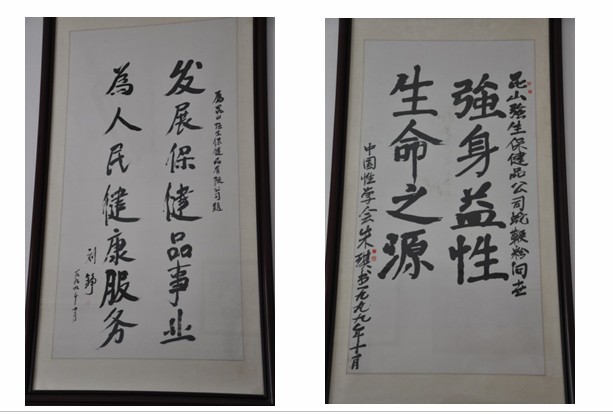 為昆山强生保健品有限公司题
发展保健品事业
為人民健康服务
昆山强生保健品公司蛇鞭粉问世
強身益性
生命之源
中国性学会朱琪书一九九九年十一月